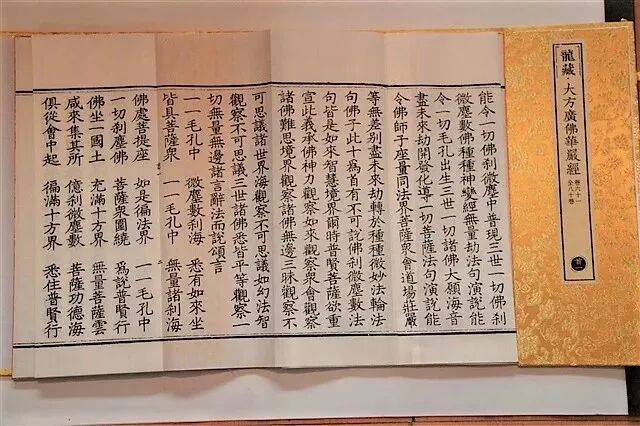 龍藏·大方廣佛華嚴經
卷六十一
全八十卷
能令一切佛刹微塵中普現三世一切佛刹
微塵數佛種種神變經無量劫法句演說能
令一切毛孔出生三世一切諸佛大願海音
盡未來劫開發化導一切菩薩法句演說能
令佛師子座量同法界菩薩衆會道場莊嚴
等無差別盡未來劫轉於種種微妙法輪法
句佛子此十為首有不可說佛刹微塵數法
句皆是如來智慧境界爾時普賢菩薩欲重
宣此義承佛神力觀察如來觀察衆會觀察
諸佛難思境界觀察諸佛無邊三昧觀察不
可思議諸世界海觀察不可思議如幻法智
觀察不可思議三世諸佛悉皆平等觀察一
切無量無邊諸言辭法而說頌言
一一毛孔中 微塵數刹海 悉有如來坐
皆具菩薩衆 一一毛孔中 無量諸刹海
佛處菩提座 如是徧法界 一一毛孔中
一切刹塵佛 菩薩衆圍繞 為說普賢行
佛坐一國土 充滿十方界 無量菩薩雲
咸來集其所 億刹微塵數 菩薩功德海
俱從會中起 徧滿十方界 悉住普賢行